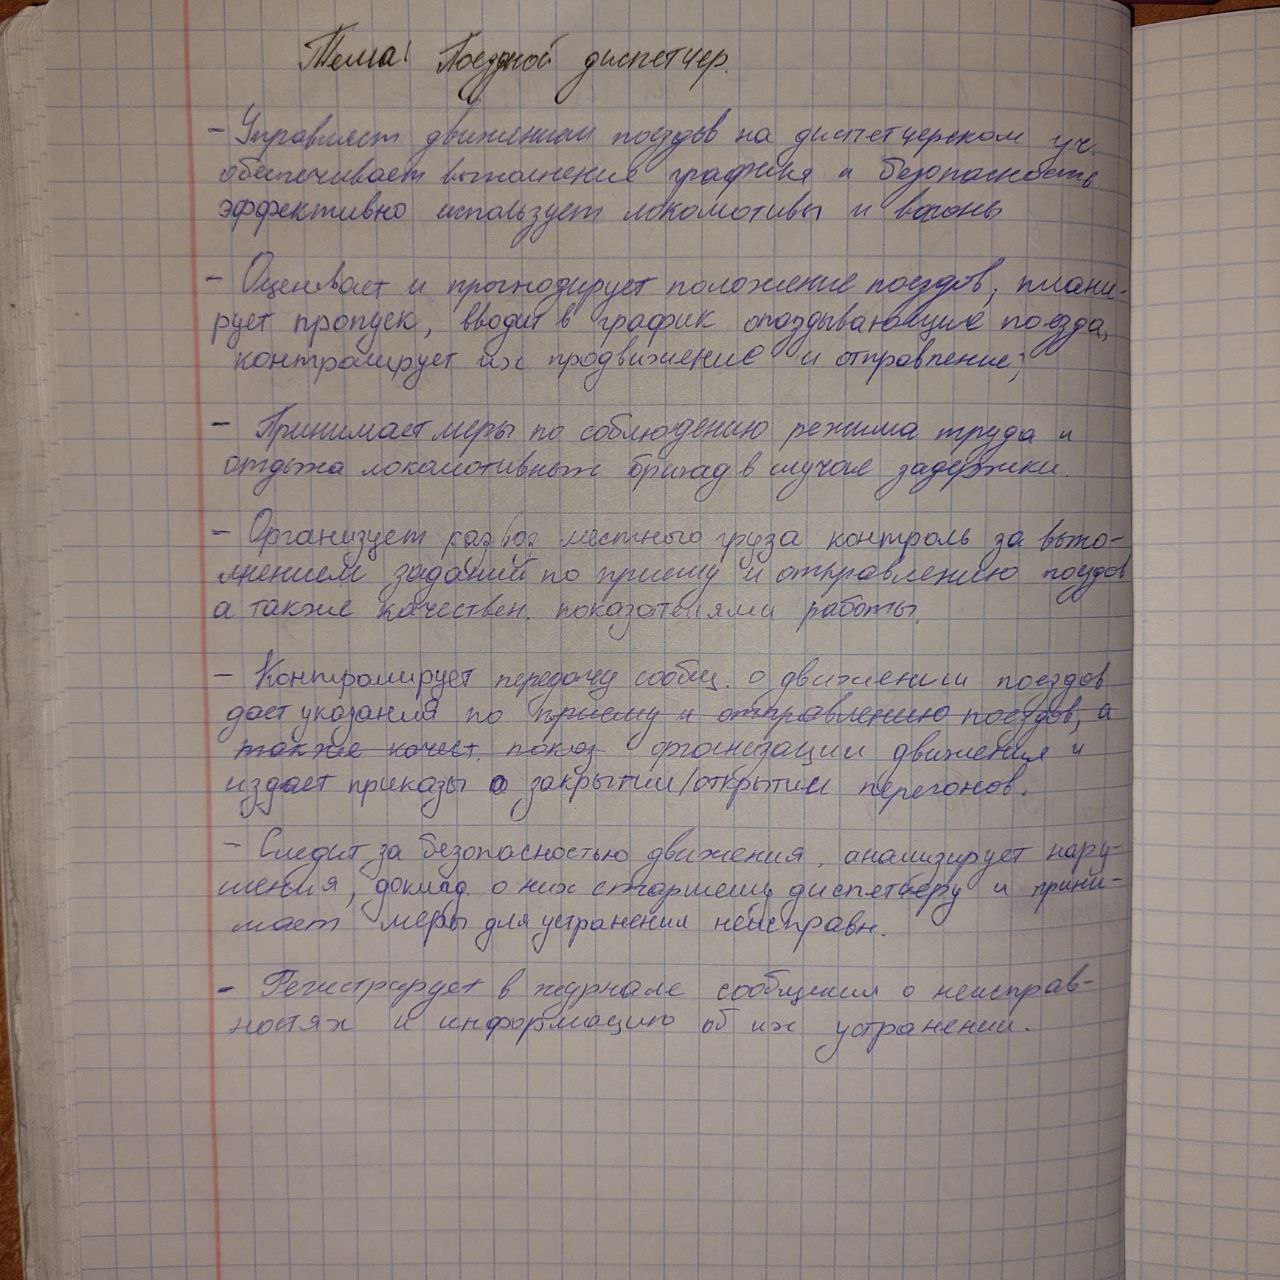 Тема: Поездной диспетчер.
- Управляет движением поездов на диспетчерском уч.
обеспечивает выполнение графика и безопасность
эффективно использует локомотивы и вагоны
- Оценивает и прогнозирует положение поездов, плани-
рует пропуск, вводит в график опаздывающие поезда,
контролирует их продвижение и отправление;
- Принимает меры по соблюдению режима труда и
отдыха локомотивных бригад в случае задержки.
- Организует развоз местного груза контроль за выпо-
лнением заданий по приему и отправлению поездов
а также качествен. показателями работы.
- Контролирует передачу сообщ. о движении поездов
дает указания по приему и отправлению поездов, а
также качест. показ организации движения и
издает приказы о закрытии/открытии перегонов.
- Следит за безопасностью движения, анализирует нару-
шения, доклад. о них старшему диспетчеру и прини-
мает меры для устранения неисправн.
- Регистрирует в журнале сообщения о неисправ-
ностях и информацию об их устранении.